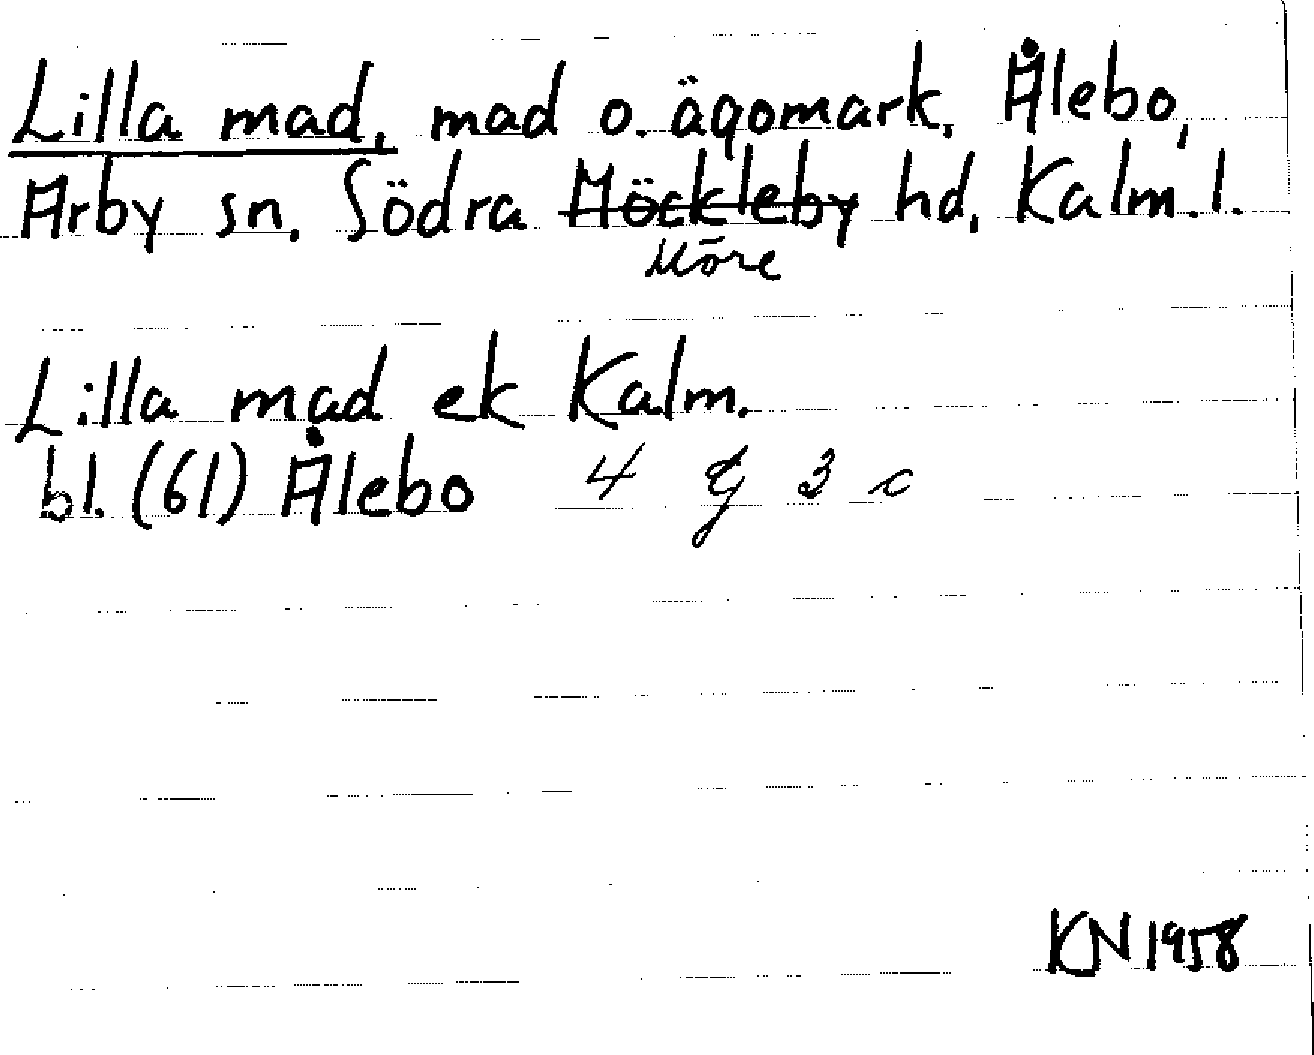 Lilla mad, mad o. ägomark, Ålebo,
Arby sn. Södra Möckleby hd, Kalm. l.
Möre
Lilla mad ek Kalm.
bl. (61) Ålebo 4 G 3 c
KN 1958